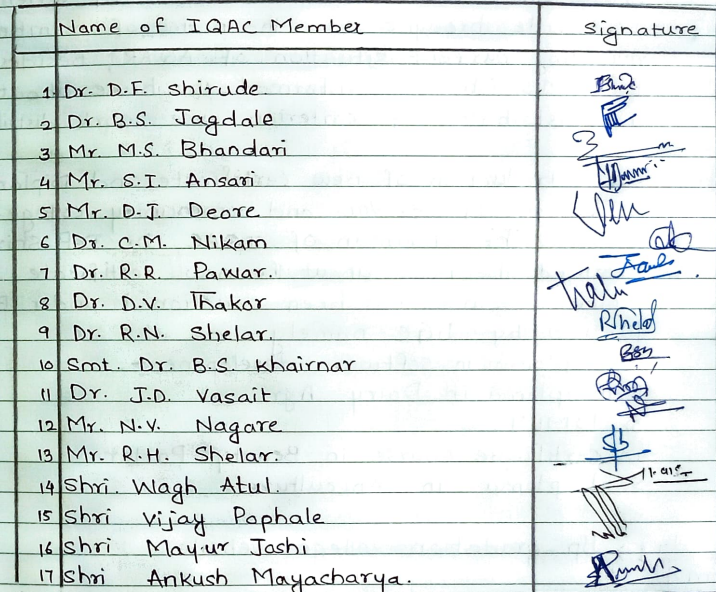 Name of IQAC Member Signature
1. Dr. D.F. Shirude
2 Dr. B.S. Jagdale
3 Mr. M.S. Bhandari
4 Mr. S.I. Ansari
5 Mr. D.J. Deore
6 Dr. C.M. Nikam
7 Dr. R.R. Pawar.
8 Dr. D.V. Thakor
9 Dr. R.N. Shelar.
10 Smt. Dr. B.S. Khairnar
11 Dr. J.D. Vasait
12 Mr. N.V. Nagare
13 Mr. R.H. Shelar.
14 Shri. Wagh Atul.
15 Shri Vijay Pophale
16 Shri Mayur Joshi
17 Shri Ankush Mayacharya.